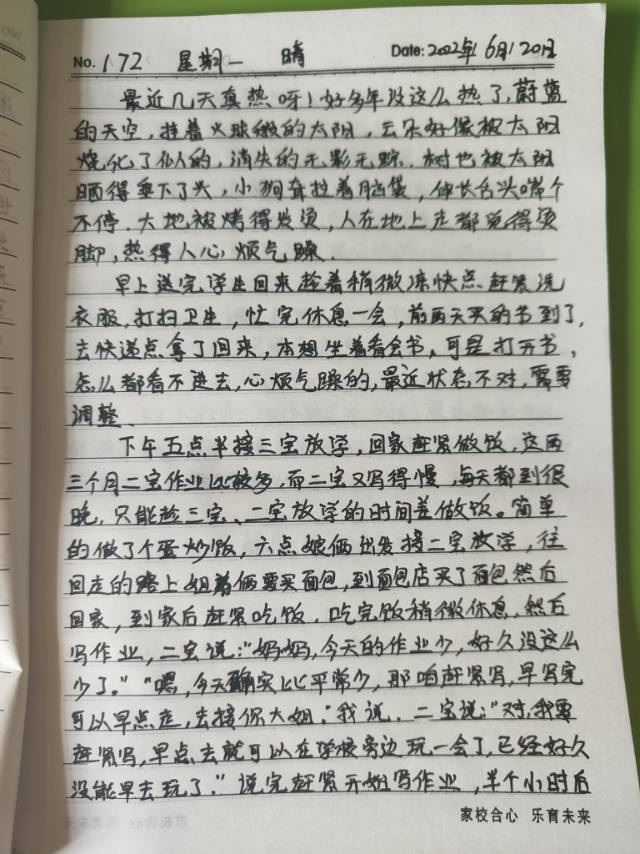 No. 172 星期一 晴 Date: 2022年6月20日
最近几天真热呀！好多年没这么热了，蔚蓝
的天空，挂着火球般的太阳，云朵好像被太阳
烧化了似的，消失的无影无踪．树也被太阳
晒得垂下了头，小狗耷拉着脑袋，伸长舌头喘个
不停．大地被烤得发烫，人在地上走都觉得烫
脚，热得人心烦气躁．
早上送完学生回来趁着稍微凉快点赶紧洗
衣服，打扫卫生，忙完休息一会，前两天买的书到了，
去快递点拿了回来，本想坐着看会书，可是打开书，
怎么都看不进去，心烦气躁的，最近状态不对，需要
调整．
下午五点半接三宝放学，回家赶紧做饭，这两
三个月二宝作业比较多，而二宝又写得慢，每天都到很
晚，只能趁三宝、二宝放学的时间差做饭。简单
的做了个蛋炒饭，六点娘俩出发接二宝放学，往
回走的路上姐弟俩要买面包，到面包店买了面包然后
回家，到家后赶紧吃饭．吃完饭稍微休息，然后
写作业，二宝说：“妈妈，今天的作业少，好久没这么
少了。”“嗯，今天确实比平常少，那咱赶紧写，早写完
可以早点走，去接你大姐．”我说．二宝说：“对，我要
赶紧写，早点去就可以在学校旁边玩一会了，已经好久
没能早去玩了．”说完赶紧开始写作业，半个小时后
家校合心 乐育未来